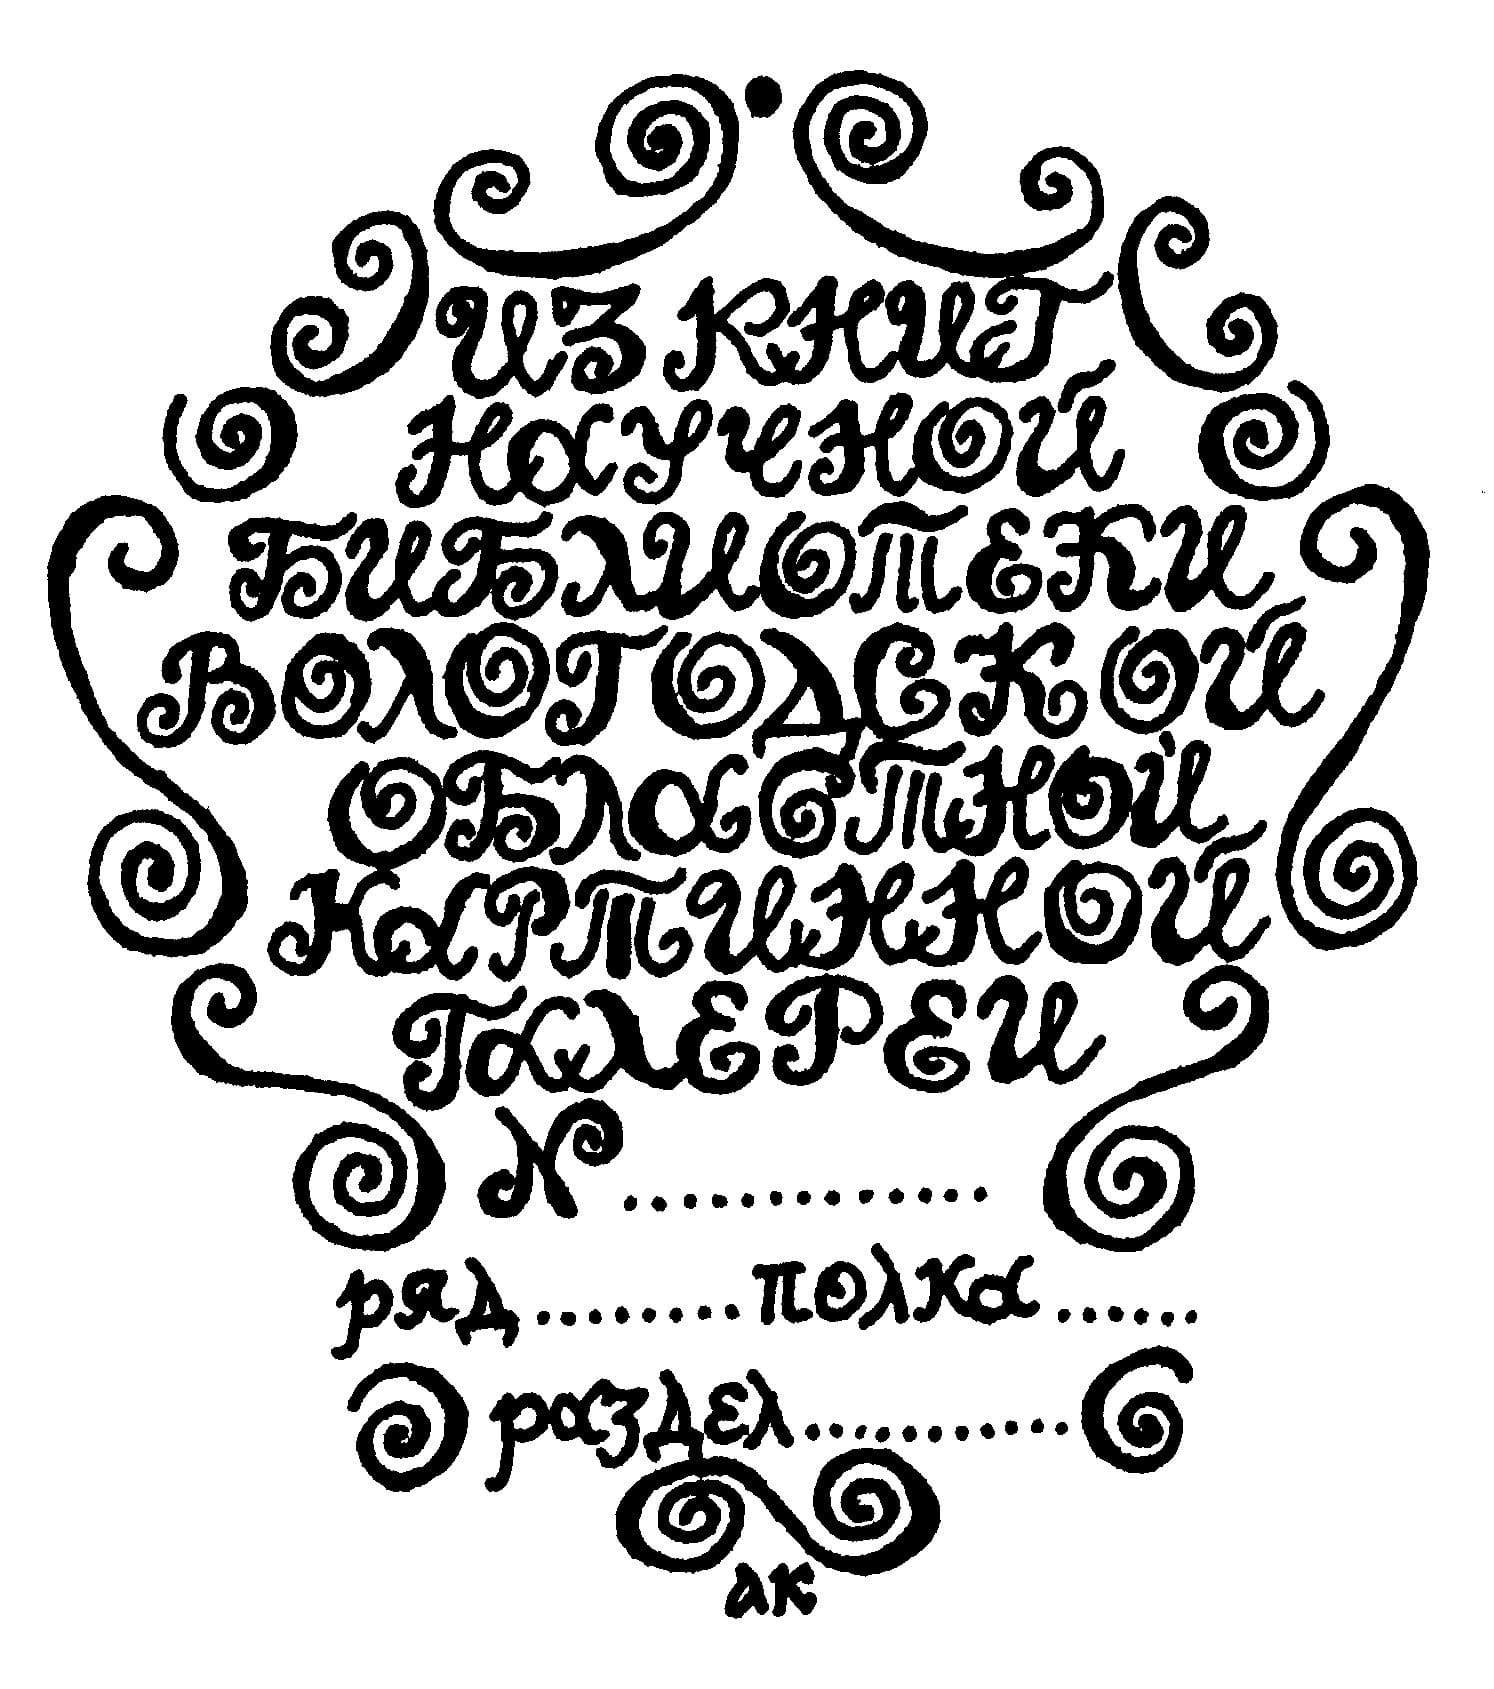 ИЗ КНИГ
НАУЧНОЙ
БИБЛИОТЕКИ
ВОЛОГОДСКОЙ
ОБЛАСТНОЙ
КАРТИННОЙ
ГАЛЕРЕИ
№.............
ряд........полка......
раздел...........
ак